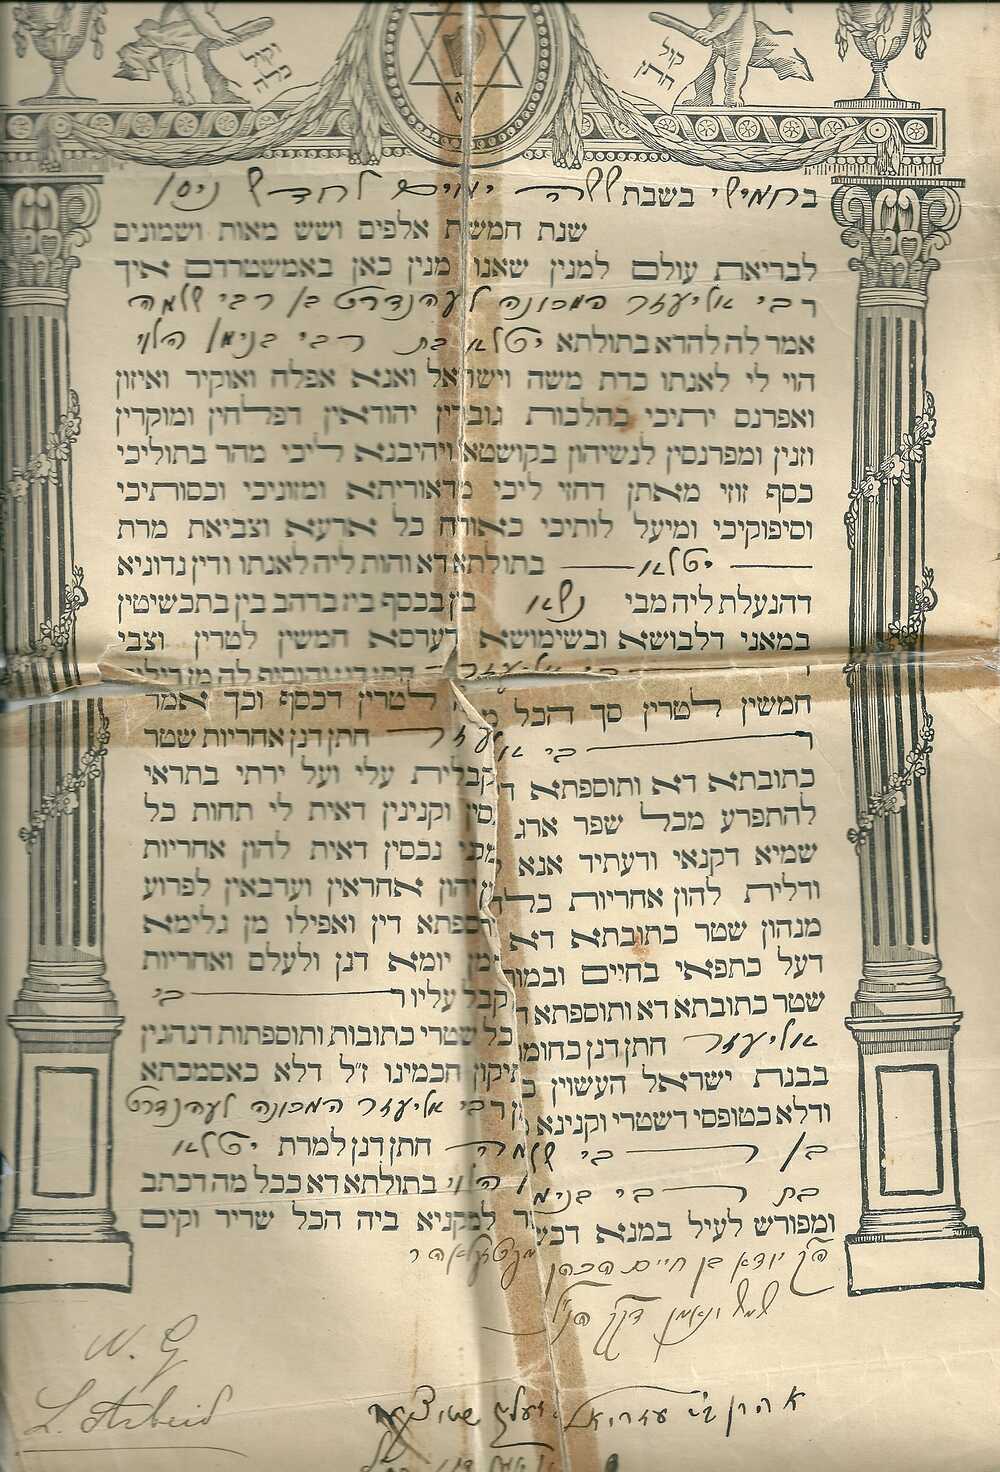 וקול כלה
קול חתן
בחמישי בשבת ששה ימים לחדש ניסן
שנת חמשת אלפים ושש מאות ושמונים
לבריאת עולם למנין שאנו מנין כאן באמשטרדם איך
רבי אליעזר המכונה לעהנדרט בן רבי שלמה
אמר לה להדא בתולתא יטלא בת רבי בנימן הלוי
הוי לי לאנתו כדת משה וישראל ואנא אפלח ואוקיר ואיזון
ואפרנס יתיכי כהלכות גוברין יהודאין דפלחין ומוקרין
וזנין ומפרנסין לנשיהון בקושטא ויהיבנא ליכי מהר בתוליכי
כסף זוזי מאתן דחזי ליכי מדאוריתא ומזוניכי וכסותיכי
וסיפוקיכי ומיעל לותיכי כאורח כל ארעא וצביאת מרת
יטלא בתולתא דא והות ליה לאנתו ודין נדוניא
דהנעלת ליה מבי נשא בין בכסף בין בדהב בין בתכשיטין
במאני דלבושא ובשימושא דערסא חמשין לטרין וצבי
ר בי אליעזר חתן דנן והוסיף לה מן דיליה
חמשין לטרין סך הכל לטרין דכסף וכך אמר
ר בי אליעזר חתן דנן אחריות שטר
כתובתא דא ותוספתא דא קבלית עלי ועל ירתי בתראי
להתפרע מכל שפר ארג נכסין וקנינין דאית לי תחות כל
שמיא דקנאי ודעתיד אנא מקני נכסין דאית להון אחריות
ודלית להון אחריות כלהון יהון אחראין וערבאין לפרוע
מנהון שטר כתובתא דא ותוספתא דין ואפילו מן גלימא
דעל כתפאי בחיים ובמות מן יומא דנן ולעלם ואחריות
שטר כתובתא דא ותוספתא דא קבל עליו ר בי
אליעזר חתן דנן כחומר כל שטרי כתובות ותוספתות דנהגין
בבנת ישראל העשוין כתיקון חכמינו ז״ל דלא כאסמכתא
ודלא כטופסי דשטרי וקנינא מן רבי אליעזר המכונה לעהנדרט
בן ר בי שלמה חתן דנן למרת יטלא
בת ר בי בנימן הלוי בתולתא דא ככל מה דכתב
ומפורש לעיל במנא דכשר למקניא ביה הכל שריר וקים
הק יודא בן חיים הכהן
שמש ונאמן דקק הנ״ל
W. G
L. Arbeid
אהרן ב״ר עזריאל